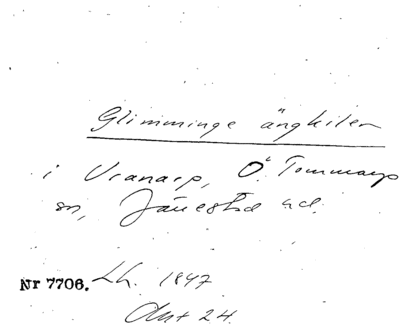 Glimminge ängkilen
i Vranarp, Ö. Tommarp
sn, Järrestad hd.
Nr 7706. Lh. 1847
Akt 24.